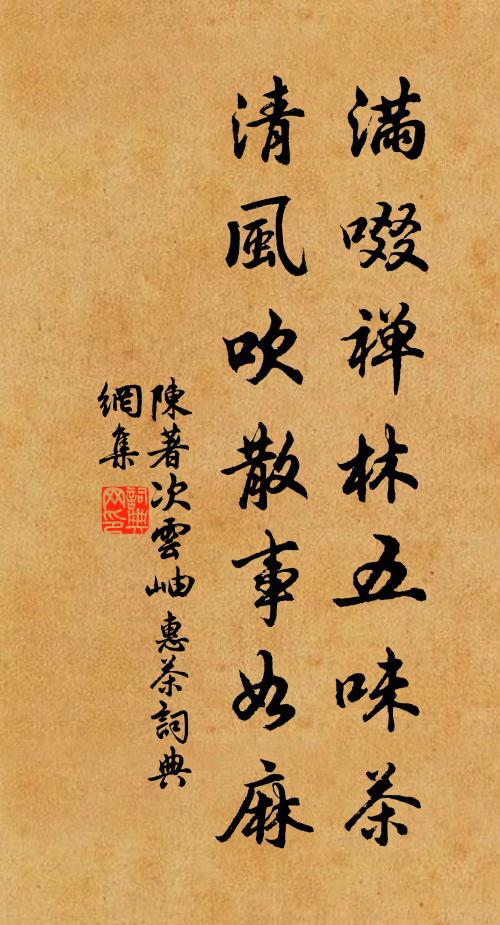 滿啜禅林五味茶
清風吹散事如麻
陳著次雲岫惠茶詞典
網集
詞典
网印